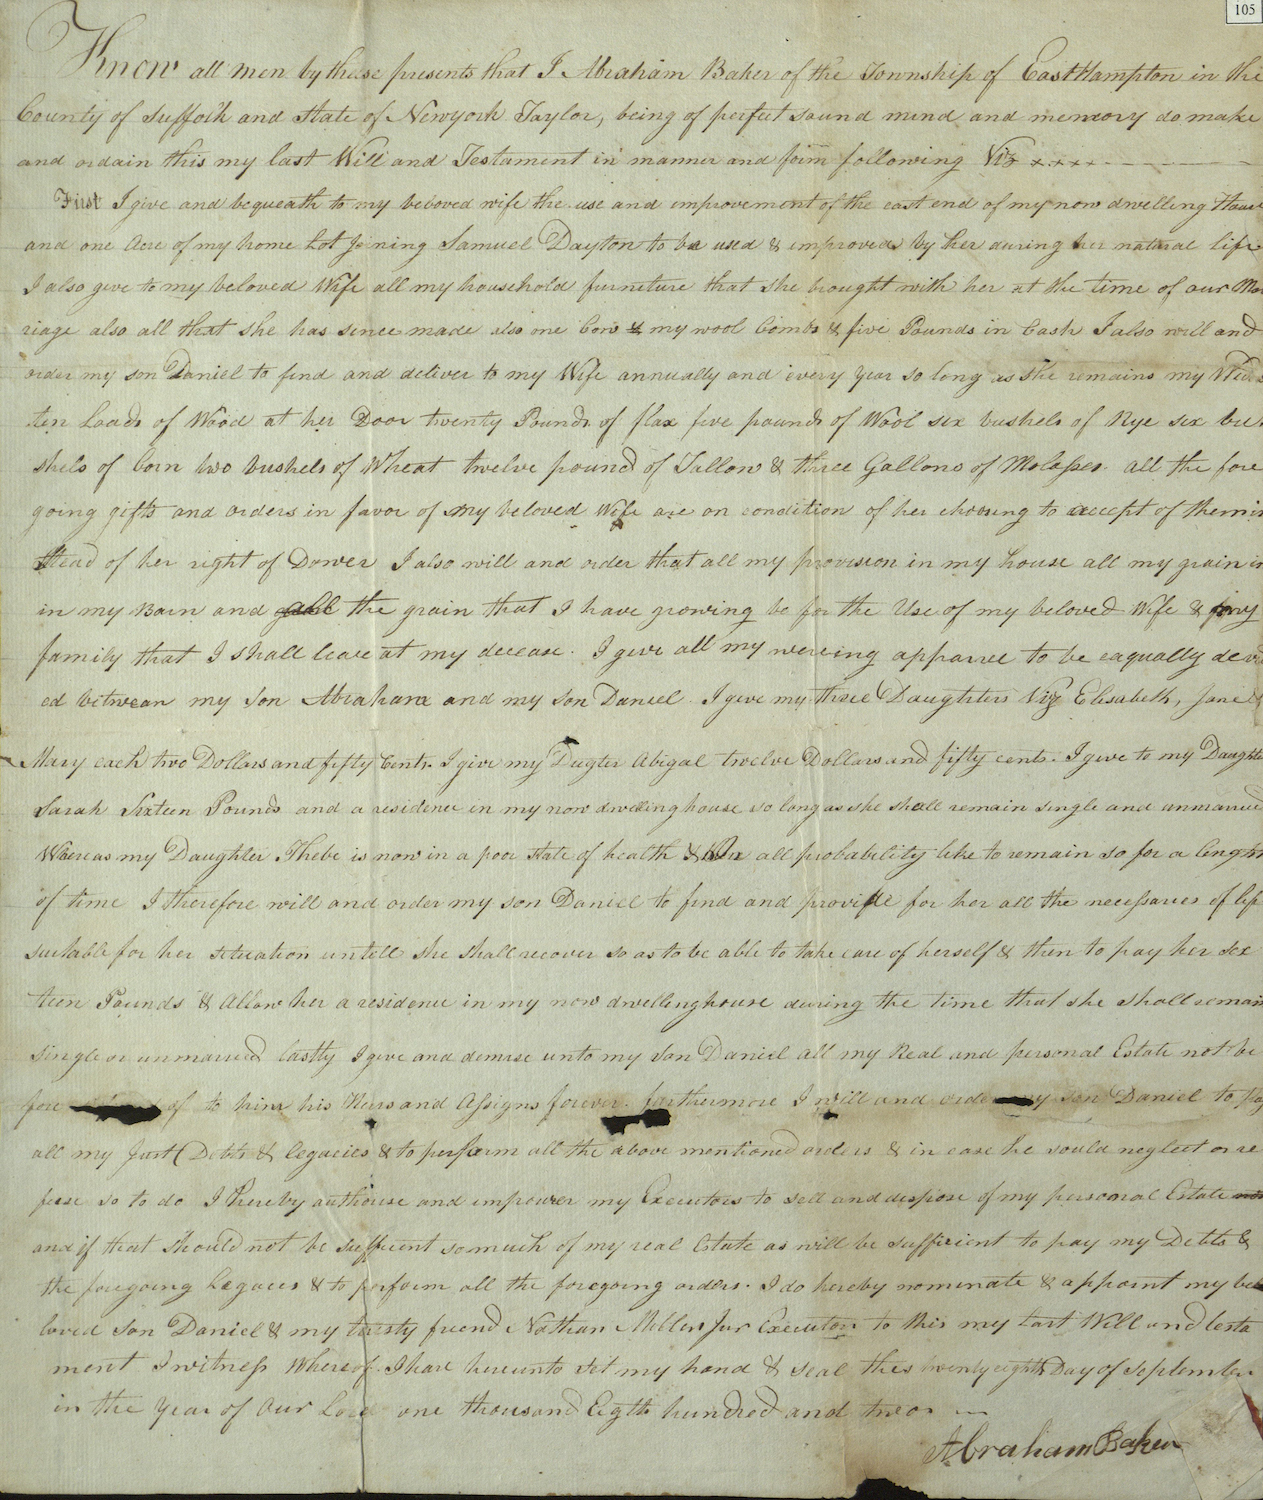 105
Know all men by these presents that I Abraham Baker of the Township of EastHampton in the
County of Suffolk and State of Newyork Taylor, being of perfect sound mind and memory do make
and ordain this my last Will and Testament in manner and form following Viz
First I give and bequeath to my beloved wife the use and improvement of the east end of my now dwelling House
and one Acre of my home Lot Joining Samuel Dayton to be used & improved by her during her natural life
I also give to my beloved Wife all my household furneture that she brought with her at the time of our Mar
riage also all that she has since made also one Cow & my wool Combs & five Pounds in Cash I also will and
order my son Daniel to find and deliver to my Wife annually and every year so long as she remains my
ten Loads of Wood at her Door twenty Pounds of flax five pounds of Wool six bushels of Rye six bu
shels of Corn two bushels of Wheat twelve pound of Tallow & three Gallons of Molasses. all the fore
going gifts and orders in favor of my beloved Wife are on condition of her choosing to accept of them in
stead of her right of Dower I also will and order that all my provision in my house all my grain in
in my Barn and the grain that I have growing be for the Use of my beloved Wife & my
family that I shall leave at my decease. I give all my wereing apparree to be eaqually devid
ed betwean my Son Abraham and my son Daniel. I give my three Daughters Viz Elisabeth, Jane &
Mary each two Dollars and fifty Cents. I give my Dugter Abigal twelve Dollars and fifty cents. I give to my Daughter
Sarah Sixteen Pounds and a residence in my now dwelling house so long as she shall remain single and unmarried
Whereas my Daughter Phebe is now in a poor state of health & in all probability like to remain so for a length
of time I therefore will and order my son Daniel to find and provide for her all the necessaries of life
suitable for her situation untill she shall recover so as to be able to take care of herself & then to pay her Six
teen Pounds & Allow her a residence in my now dwellinghouse during the time that she shall remain
single or unmarried lastly I give and demise unto my Son Daniel all my Real and personal Estate not be
fore of to him his Heirs and Assigns forever. farthermore I will and order my son Daniel to pay
all my Just Debts & legacies & to perform all the above mentioned orders & in case he sould neglect or re
fuse so to do I hereby authouse and impower my Executors to sell and dispose of my personal Estate
and if that should not be sufficient so much of my real Estate as will be sufficient to pay my Debts &
the foregoing Legaces & to perform all the foregoing orders. I do hereby nominate & appoint my be
loved Son Daniel & my trusty friend Nathan Miller Jur Executors to this my Last Will and testa
ment I witness Whereof I have hereunto set my hand & seal this twenty eighth Day of September
in the Year of Our Lord one thousand Eigth hundred and two
Abraham Baker